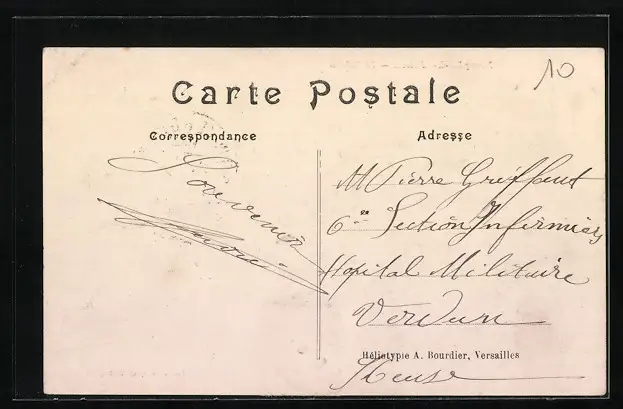 10
Carte Postale
Correspondance
Adresse
Souvenir
M Pierre Griffaut
6me Section Infirmiers
Hopital Militaire
Verdun
Héliotypie A. Bourdier, Versailles
Meuse